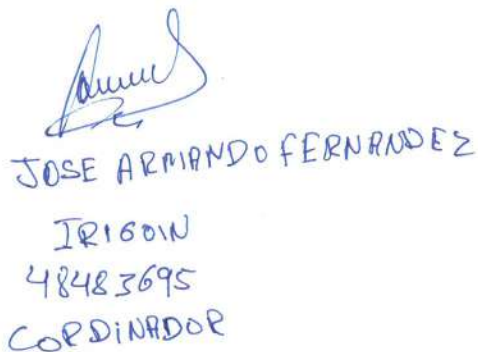 JOSE ARMANDO FERNANDEZ
IRIGOIN
48483695
CORDINADOR